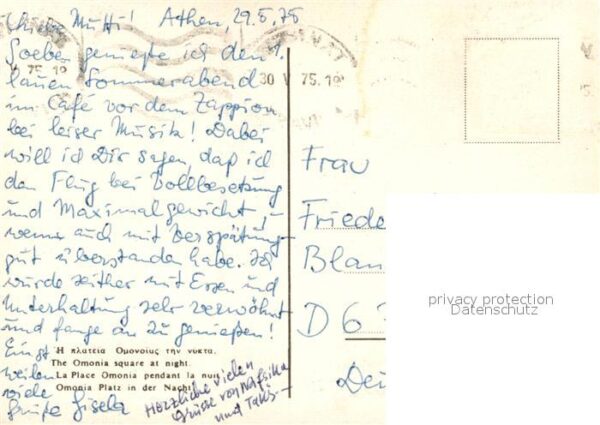 Mutti! Athen, 29.5.75
Soeben genieße ich den 1.
lauen Sommerabend
im Café vor dem Zappion
bei leiser Musik! Dabei
will ich Dir sagen, daß ich
den Flug bei Vollbesetzung
und Maximalgewicht,
wenn auch mit Verspätung
gut überstanden habe. Ich
wurde seither mit Essen und
Unterhaltung sehr verwöhnt
und fange an zu genießen!
Einst
weilen
viele
Grüße Gisela
Η πλατεια Ομονοιας την νυκτα.
The Omonia square at night.
La Place Omonia pendant la nuit
Omonia Platz in der Nacht
Herzliche vielen
Grüsse von
und Takis
30 V 75.19
V 75 19
Frau
Friede
Blan
D 6
privacy protection
Datenschutz